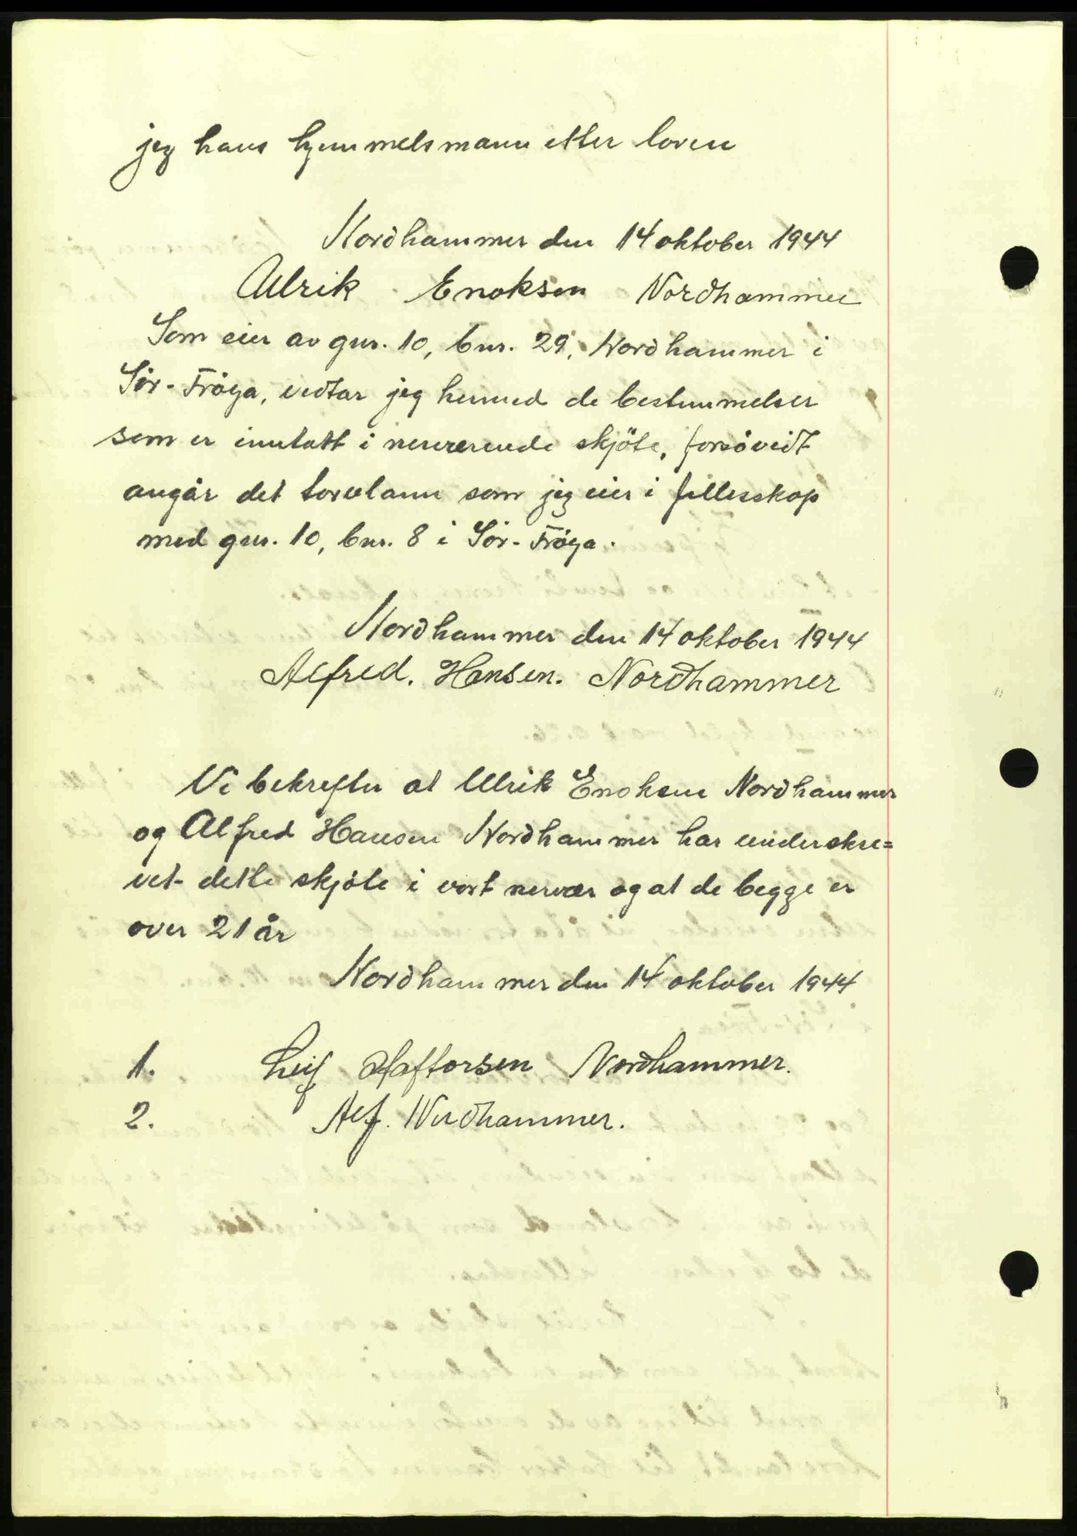 jeg hans hjemmelsmann etter loven
Nordhammer den 14 oktober 1944
Ulrik Enoksen Nordhammer
Som eier av gnr. 10, bnr. 29, Nordhammer i
Sör-Fröya, vedtar jeg herved de bestemmelser
som er inntatt i nerværende skjöte, forsåvidt
angår det torvland som jeg eier i fellesskap
med gnr. 10, bnr. 8 i Sör-Fröya.
Nordhammer den 14 oktober 1944
Alfred. Hansen. Nordhammer
Vi bekrefter at Ulrik Enoksen Nordhammer
og Alfred Hansen Nordhammer har underskre=
vet dette skjöte i vort nervær og at de begge er
over 21 år
Nordhammer den 14 oktober 1944
1. Leif Haftorsen Nordhammer.
2. Alf. Nordhammer.